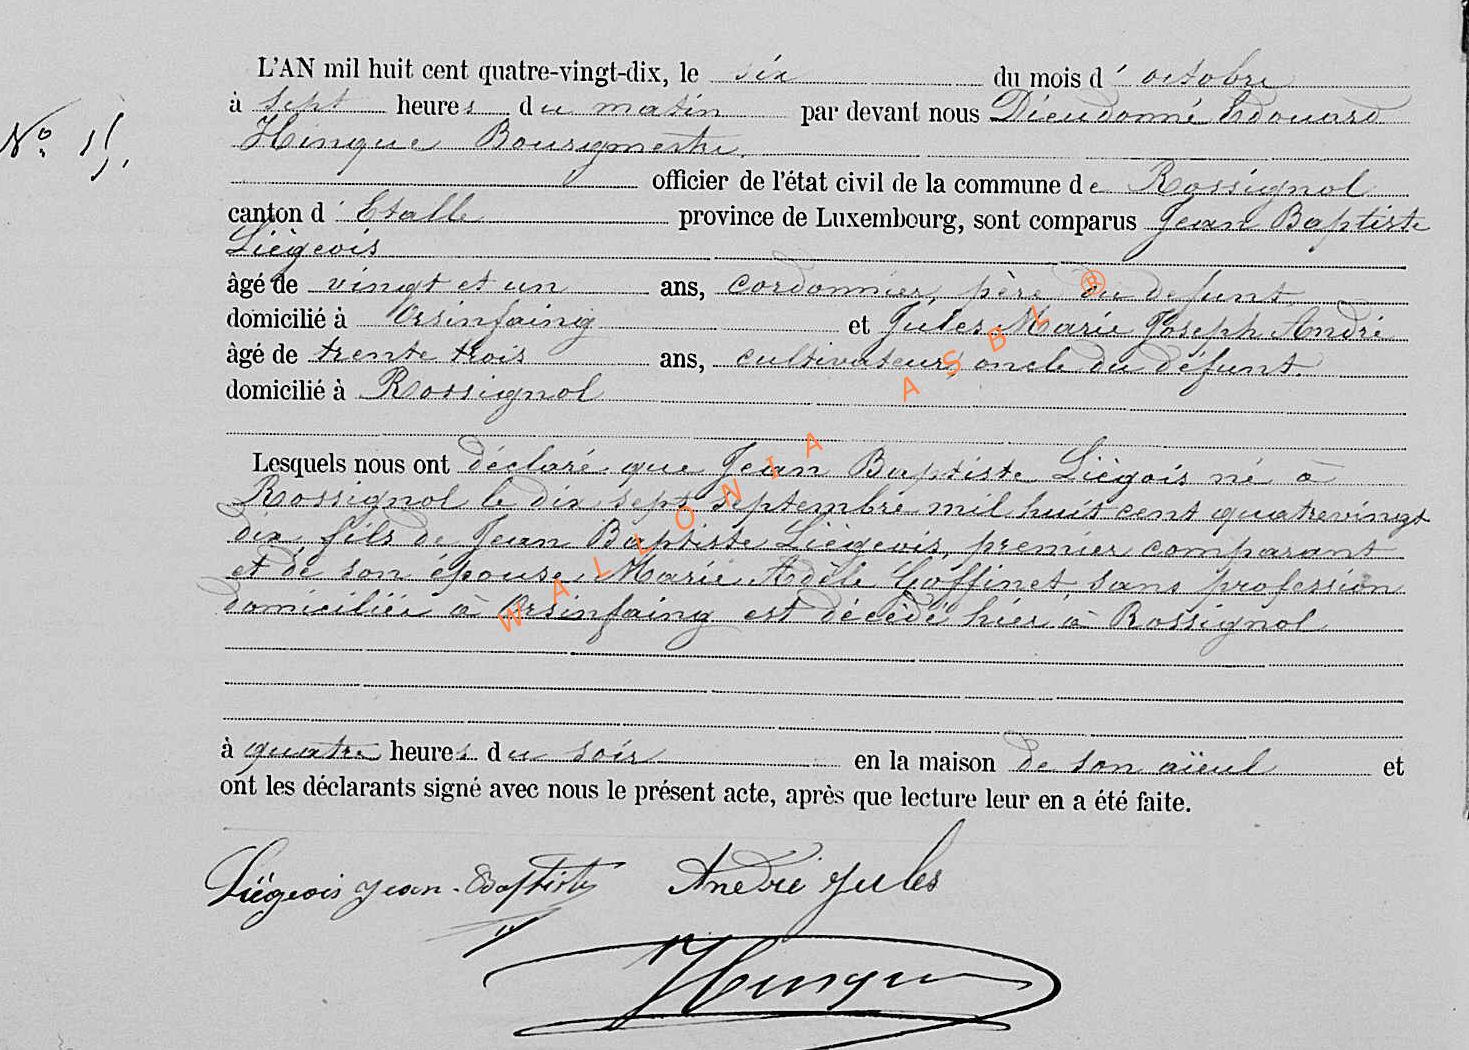 L'AN mil huit cent quatre-vingt-dix, le six du mois d' octobre
à sept heures du matin par devant nous Dieudonné Edouard
Nº 15.
Hinque Bourgmestre.
officier de l'état civil de la commune de Rossignol
canton d' Etalle province de Luxembourg, sont comparus Jean Baptiste
Liègeois
âgé de vingt et un ans, cordonnier, père du défunt
domicilié à Orsinfaing et Jules Marie Joseph André
âgé de trente trois ans, cultivateur, oncle du défunt.
domicilié à Rossignol
Lesquels nous ont déclaré que Jean Baptiste Liègois né à
Rossignol le dix sept septembre mil huit cent quatrevingt
dix fils de Jean Baptiste Liègeois, premier comparant
et de son épouse Marie Adèle Goffinet, sans profession
domiciliée à Orsinfaing est décédé hier à Rossignol
à quatre heures du soir en la maison de son aïeul et
ont les déclarants signé avec nous le présent acte, après que lecture leur en a été faite.
Liégeois Jean-Baptiste André Jules
Hinque
WALLONIA ASBL ®